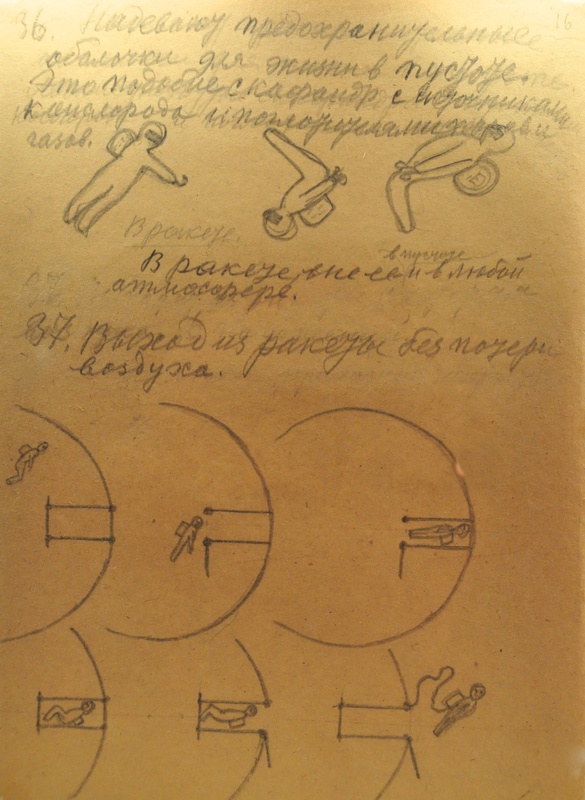 16
36. Надевают предохранительные
оболочки для жизни в пустоте.
Это подобие скафандр с источниками
кислорода и поглотителями
газов.
В ракете.
в пустоте
В ракете, вне её и в любой
атмосфере.
37. Выход из ракеты без потери
воздуха.